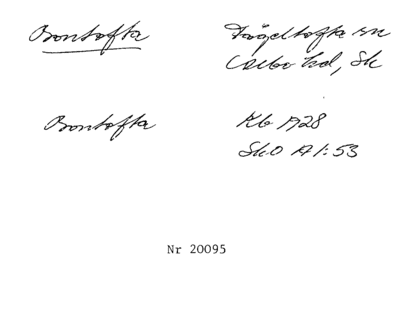 Bontofta
Tågeltofta sn
Albo hd, Sk
Bontofta
Kb 1728
Sk.O A 1:53
Nr 20095